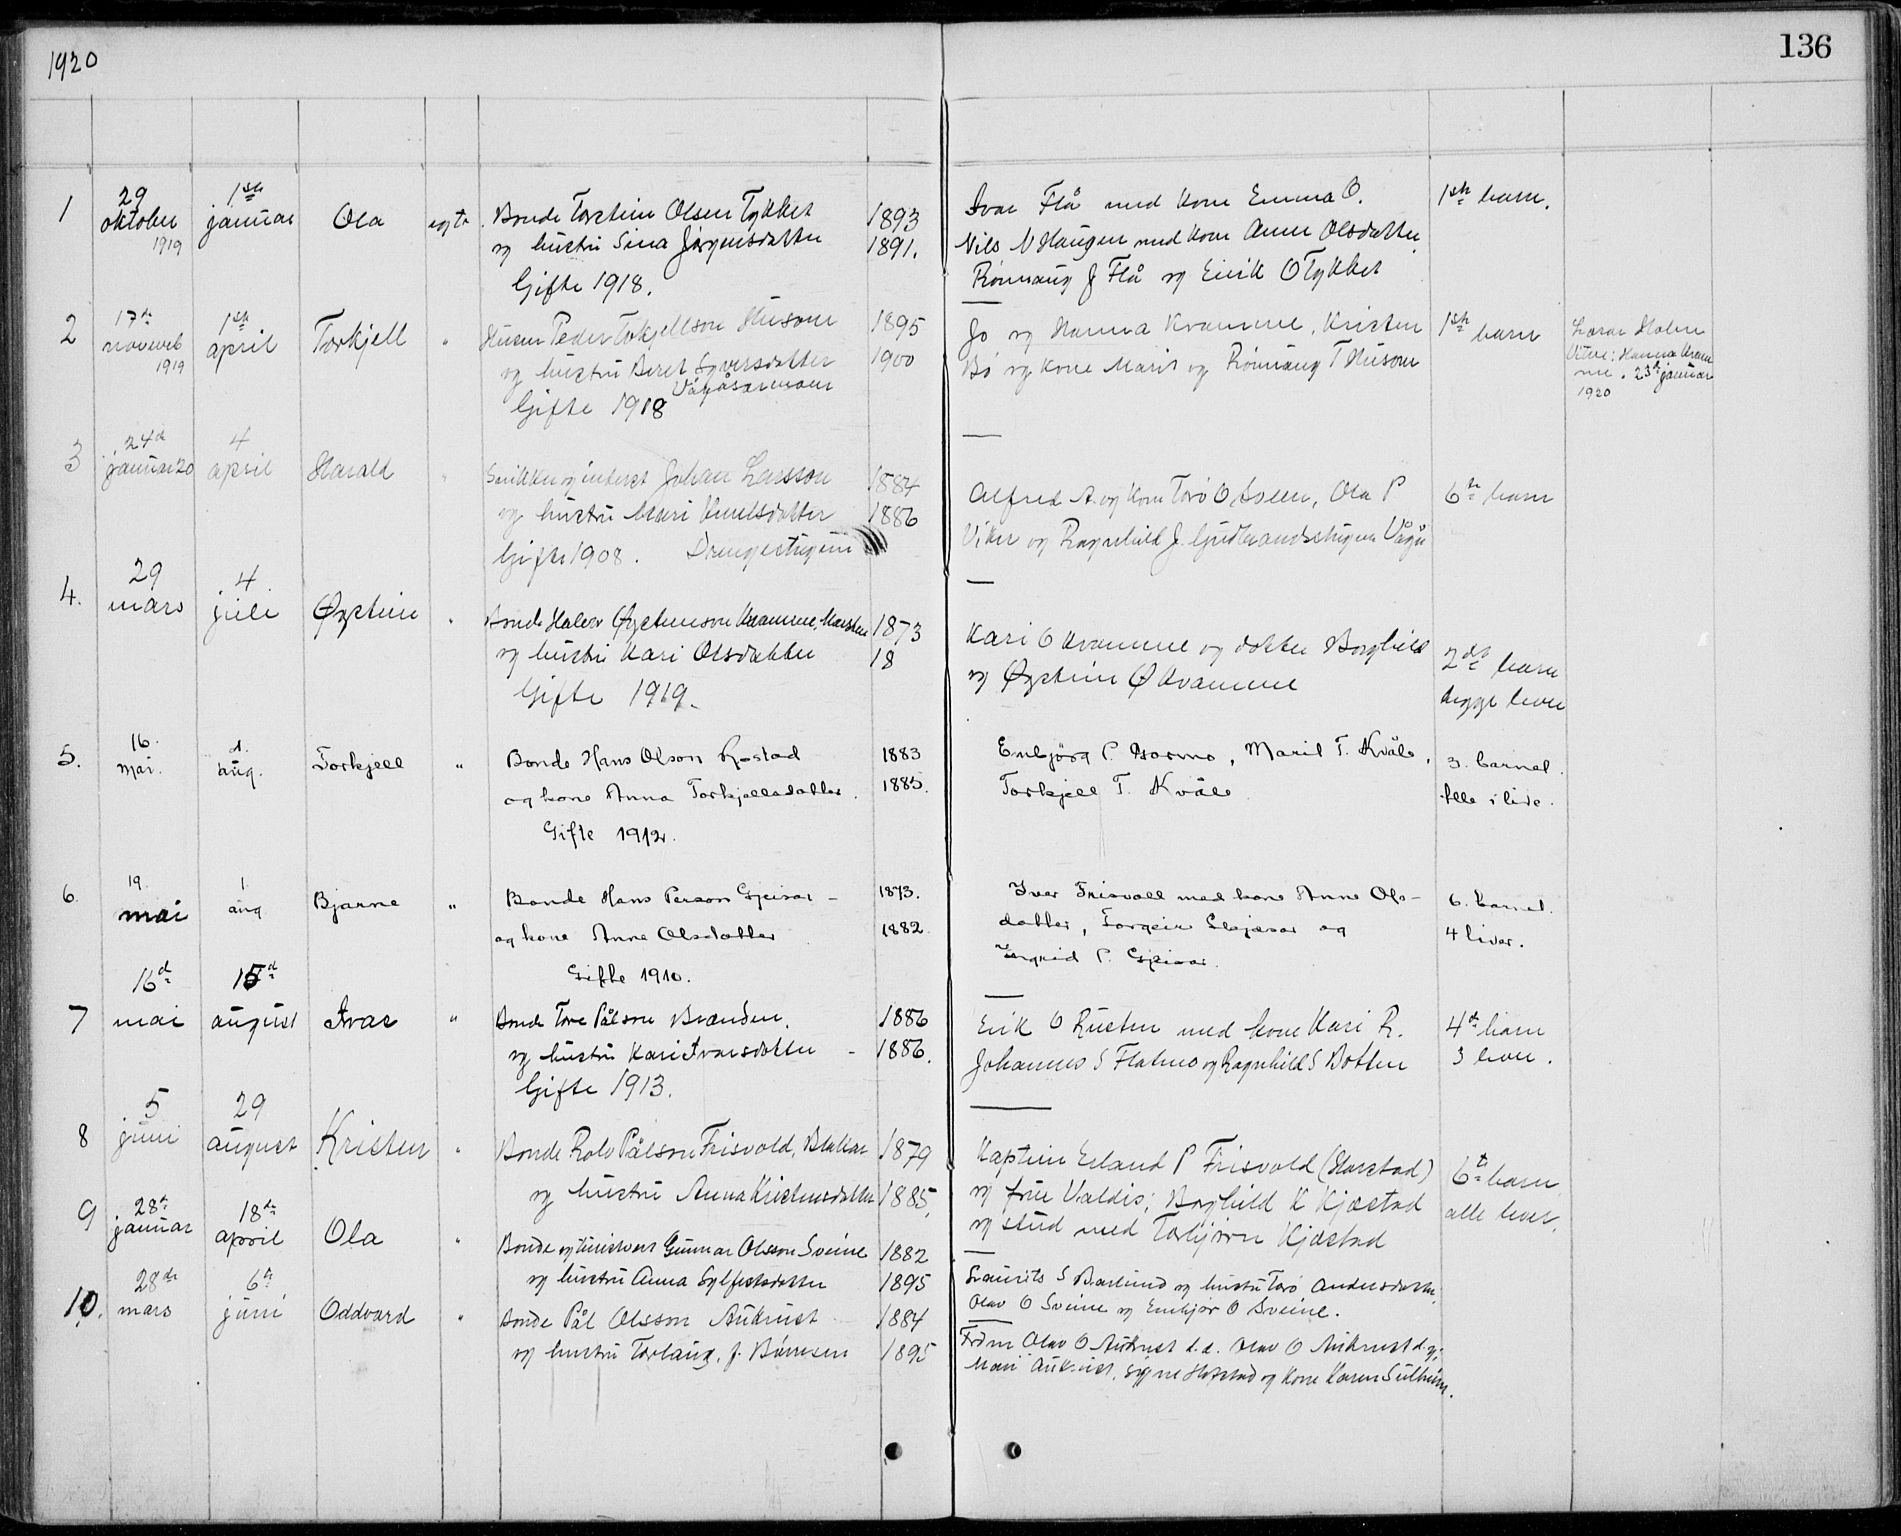 1920
136
1
29 oktober 1919
1ste januar
Ola
egte
Bonde Torstein Olsen Tykket
og hustru Sina Jørgensdatter
Gifte 1918.
1893
1891.
Ivar Flå med kone Emma O.
Nils N Haugen med kone Anne Olsdatter
Rønnaug J Flå og Eirik O Tykket
1ste barn.
2
17de novemb 1919
1ste april
Torkjell
"
Husm Peder Torkjellson Husom
og hustru Beret Syversdatter
Gifte 1918
1895
1900
Jo og Hanna Kvamme, Kristen
Bø og kone Marit og Rønnaug T Husom
1ste barn
Hanna Kvam
me. 23de januar
1920
3
24de januar 20
4 april
Harald
"
Snikker og inderst Johan Larsson
og hustru Mari Knutsdatter
Gifte 1908.
1884
1886
Alfred A. og kone Torø O Aseen, Ola P
Viken og Ragnhild J. Vågå
6te barn
4.
29 mars
4 juli
Øystein
"
Bonde Halvor Øysteinson Kvamme,
og hustru Kari Olsdatter
Gifte 1919.
1873
18
Kari O Kvamme og datter Borghild
og Øystein Ø Kvamme
2det barn
begge lever
5.
16. mai.
1. aug.
Torkjell
"
Bonde Hans Olson Rostad
og kone Anna Torkjellsdatter.
Gifte 1912.
1883
1885.
Enbjörg P. Garmo, Marit T. Kvåle,
Torkjell T. Kvåle
3. barnet.
Alle i live.
6.
19. mai
1. aug
Bjarne
"
Bonde Hans Person Gjeisar -
og kone Anne Olsdatter
Gifte 1910.
1873.
1882
Iver Frisvoll med kone Anne Ols-
datter, Torgeir og
Ingrid P. Gjeisar.
6. barnet.
4 liver.
7
16de mai
15de august
Ivar
"
Bonde Tore Pålson Brænden.
og hustru Kari Ivarsdatter -
Gifte 1913.
1886
1886.
Erik O Rusten med kone Kari R.
Johannes S Flatmo og Ragnhild S Botten
4de barn
3 lever.
8
5 juni
29 august
Kristen
"
Bonde Rolv Pålson Frisvold, Blakar
og hustru Anna Kristensdatter
1879
1885.
Kaptein Erland P Frisvold (Harstad)
og frue Valdis; Borghild K Kjæstad
og stud med Torbjørn Kjæstad
6te barn
alle lever.
9
28de januar
18de april
Ola
"
Bonde og Gunnar Olsson Sveine
og hustru Anna Sylfestsdatter
1882
1895
Laurits S Barlund og hustru Torø Andersdatter.
Olav O Sveine og Embjør O Sveine.
10.
28de mars
6te juni
Oddvard
"
Bonde Pål Olsson Aukrust
og hustru Torlaug, f. Bømsen
1884
1895
Olav O Aukrust d.e. Olav O Aukrust d.y;
Mari Aukrust, Signe Hofstad og kone Karen Sulheim.